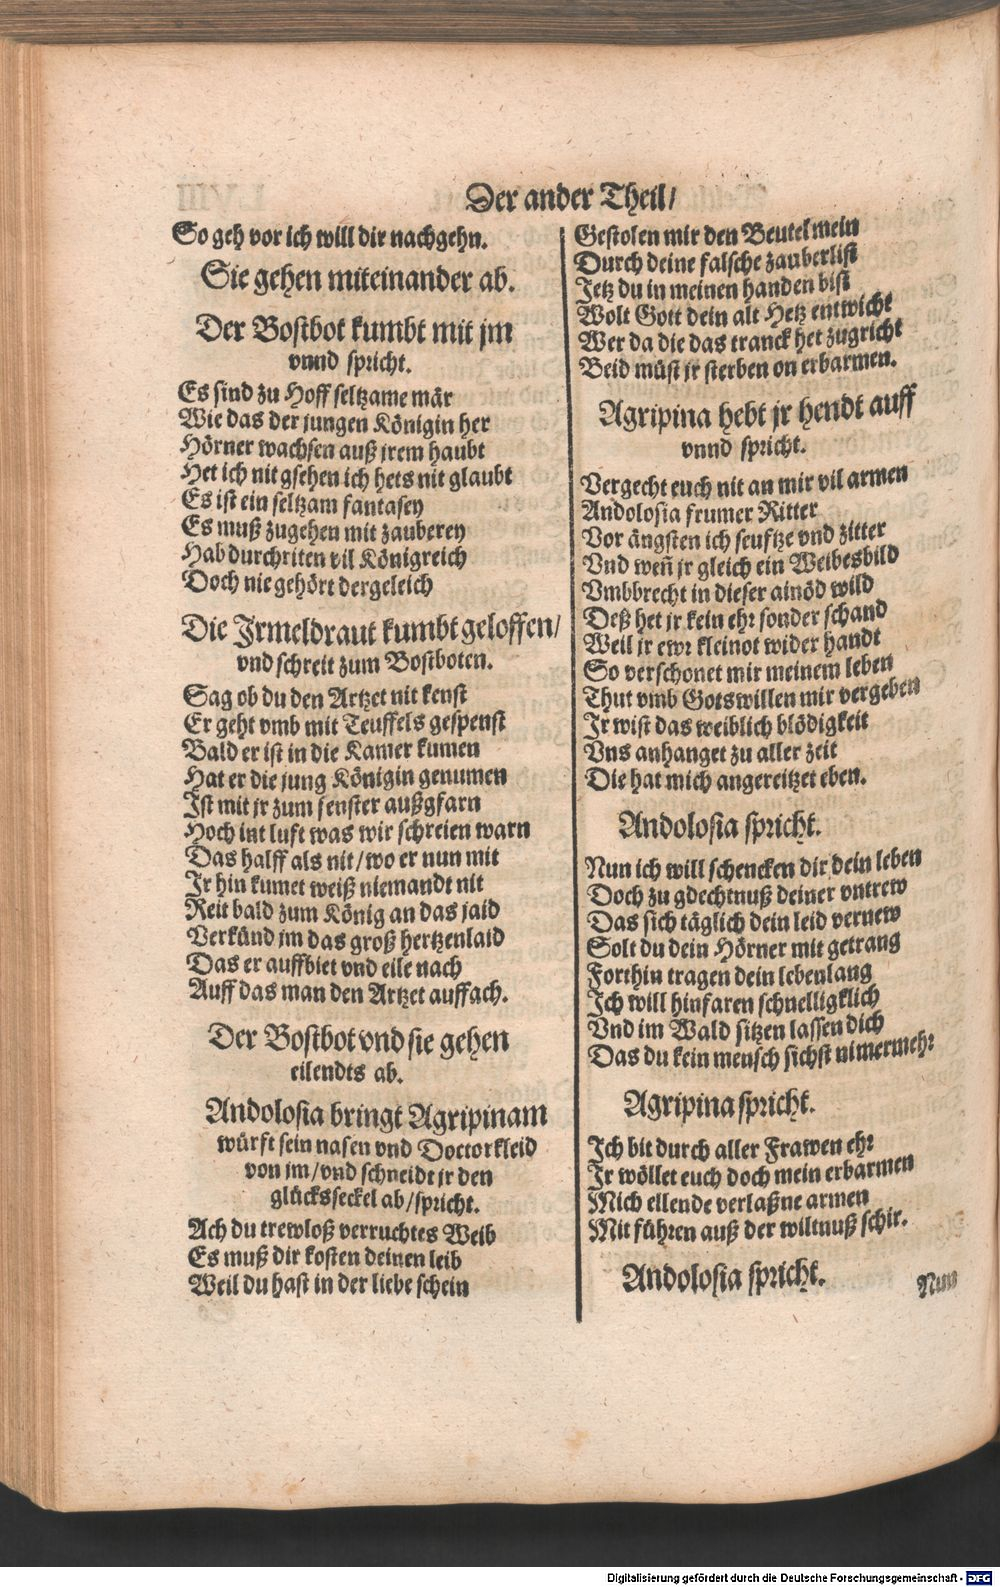 Der ander Theil/
So geh vor ich will dir nachgehn.
Sie gehen miteinander ab.
Der Bostbot kumbt mit jm
vnnd spricht.
Es sind zu Hoff seltzame mär
Wie das der jungen Königin her
Hörner wachsen auß jrem haubt
Het ich nit gsehen ich hets nit glaubt
Es ist ein seltzam fantasey
Es muß zugehen mit zauberey
Hab durchriten vil Königreich
Doch nie gehört dergeleich
Die Jrmeldraut kumbt geloffen/
vnd schreit zum Bostboten.
Sag ob du den Artzet nit kenst
Er geht vmb mit Teuffels gespenst
Bald er ist in die Kamer kumen
Hat er die jung Königin genumen
Ist mit jr zum fenster außgfarn
Hoch int luft was wir schreien warn
Das halff als nit/wo er nun mit
Jr hin kumet weiß niemandt nit
Reit bald zum König an das jaid
Verkünd jm das groß hertzenlaid
Das er auffbiet vnd eile nach
Auff das man den Artzet auffach.
Der Bostbot vnd sie gehen
eilendts ab.
Andolosia bringt Agripinam
würft sein nasen vnd Doctorkleid
von jm/vnd schneidt jr den
glücksseckel ab/spricht.
Ach du trewloß verruchtes Weib
Es muß dir kosten deinen leib
Weil du hast in der liebe schein
Gestolen mir den Beutel mein
Durch deine falsche zauberlist
Jetz du in meinen handen bist
Wolt Gott dein alt Hetz entwicht
Wer da die das tranck het zugricht
Beid müst jr sterben on erbarmen.
Agripina hebt jr hendt auff
vnnd spricht.
Vergecht euch nit an mir vil armen
Andolosia frumer Ritter
Vor ängsten ich seufftze vnd zitter
Vnd weñ jr gleich ein Weibesbild
Vmbbrecht in dieser ainöd wild
Deß het jr kein ehr sonder schand
Weil jr ewr kleinot wider handt
So verschonet mir meinem leben
Thut vmb Gotswillen mir vergeben
Jr wist das weiblich blödigkeit
Vns anhanget zu aller zeit
Die hat mich angereitzet eben.
Andolosia spricht.
Nun ich will schencken dir dein leben
Doch zu gdechtnuß deiner vntrew
Das sich täglich dein leid vernew
Solt du dein Hörner mit getrang
Forthin tragen dein lebenlang
Ich will hinfaren schnelligklich
Vnd im Wald sitzen lassen dich
Das du kein mensch sichst nimermehr
Agripina spricht.
Ich bit durch aller Frawen ehr
Jr wöllet euch doch mein erbarmen
Mich ellende verlaßne armen
Mit führen auß der wiltnuß schir.
Andolosia spricht.
Nun
Digitalisierung gefördert durch die Deutsche Forschungsgemeinschaft - DFG